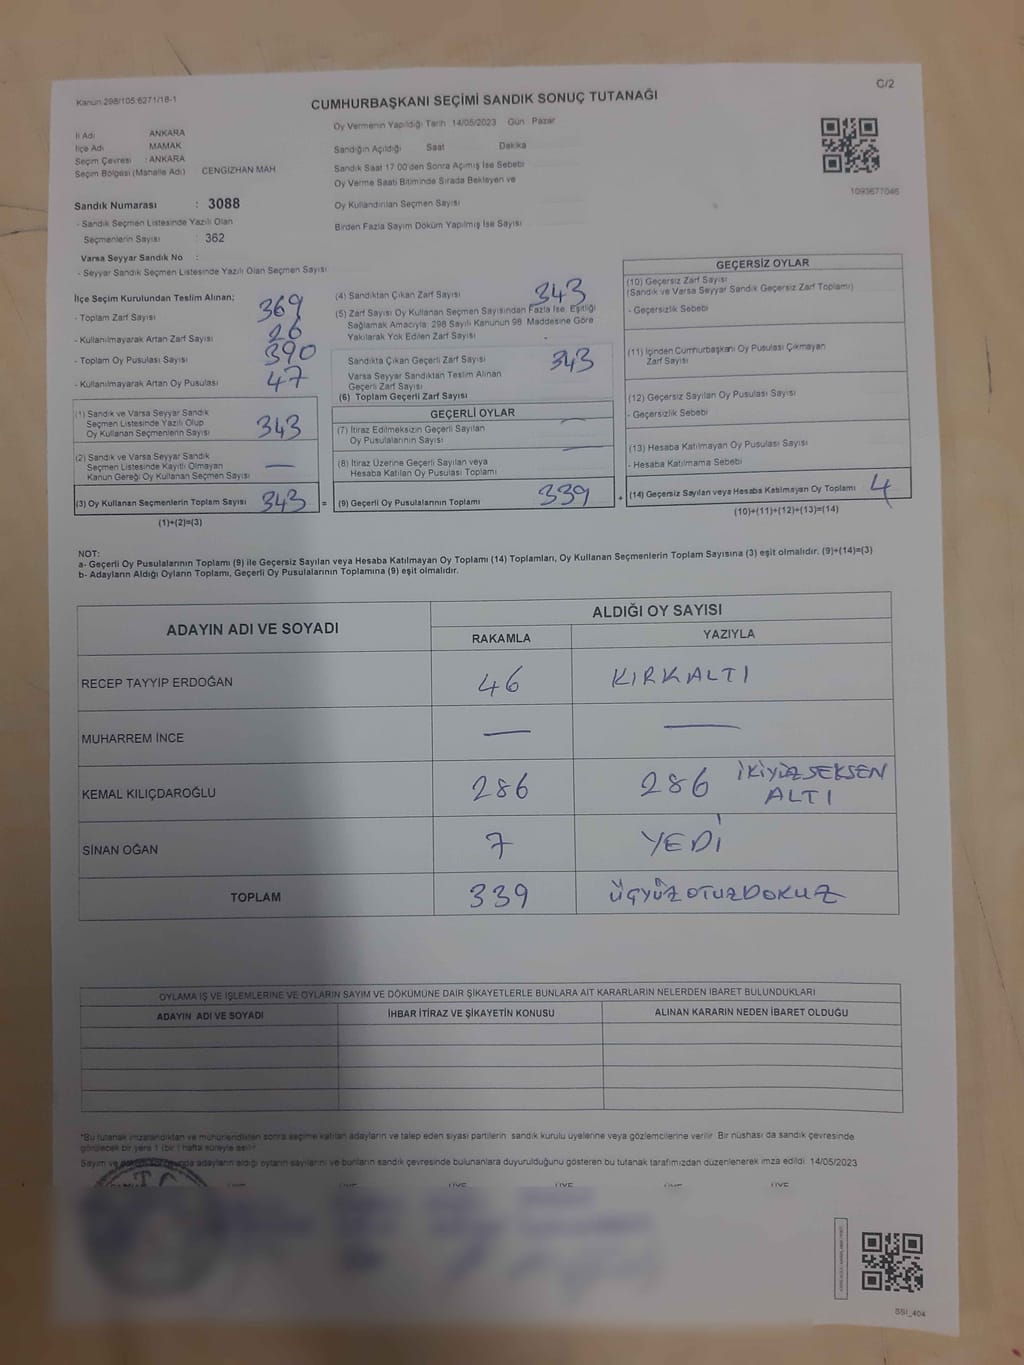 Kanun 298/105:6271/18-1
C/2
CUMHURBAŞKANI SEÇİMİ SANDIK SONUÇ TUTANAĞI
İl Adı ANKARA
İlçe Adı MAMAK
Seçim Çevresi : ANKARA
Seçim Bölgesi (Mahalle Adı) CENGIZHAN MAH
Sandık Numarası : 3088
- Sandık Seçmen Listesinde Yazılı Olan
Seçmenlerin Sayısı : 362
Varsa Seyyar Sandık No :
- Seyyar Sandık Seçmen Listesinde Yazılı Olan Seçmen Sayısı
Oy Vermenin Yapıldığı Tarih 14/05/2023 Gün : Pazar
Sandığın Açıldığı Saat Dakika
Sandık Saat 17:00'den Sonra Açımış İse Sebebi
Oy Verme Saati Bitiminde Sırada Bekleyen ve
Oy Kullandırılan Seçmen Sayısı
Birden Fazla Sayım Döküm Yapılmış İse Sayısı
1093677046
İlçe Seçim Kurulundan Teslim Alınan;
- Toplam Zarf Sayısı 369
- Kullanılmayarak Artan Zarf Sayısı 26
- Toplam Oy Pusulası Sayısı 390
- Kullanılmayarak Artan Oy Pusulası 47
(1) Sandık ve Varsa Seyyar Sandık
Seçmen Listesinde Yazılı Olup
Oy Kullanan Seçmenlerin Sayısı 343
(2) Sandık ve Varsa Seyyar Sandık
Seçmen Listesinde Kayıtlı Olmayan
Kanun Gereği Oy Kullanan Seçmen Sayısı —
(3) Oy Kullanan Seçmenlerin Toplam Sayısı 343 =
(1)+(2)=(3)
(4) Sandıktan Çıkan Zarf Sayısı 343
(5) Zarf Sayısı Oy Kullanan Seçmen Sayısından Fazla İse, Eşitliği
Sağlamak Amacıyla; 298 Sayılı Kanunun 98. Maddesine Göre
Yakılarak Yok Edilen Zarf Sayısı
Sandıkta Çıkan Geçerli Zarf Sayısı 343
Varsa Seyyar Sandıktan Teslim Alınan
Geçerli Zarf Sayısı
(6) Toplam Geçerli Zarf Sayısı
GEÇERLİ OYLAR
(7) İtiraz Edilmeksizin Geçerli Sayılan
Oy Pusulalarının Sayısı —
(8) İtiraz Üzerine Geçerli Sayılan veya
Hesaba Katılan Oy Pusulası Toplamı —
(9) Geçerli Oy Pusulalarının Toplamı 339 +
GEÇERSİZ OYLAR
(10) Geçersiz Zarf Sayısı
(Sandık ve Varsa Seyyar Sandık Geçersiz Zarf Toplamı)
- Geçersizlik Sebebi
(11) İçinden Cumhurbaşkanı Oy Pusulası Çıkmayan
Zarf Sayısı
(12) Geçersiz Sayılan Oy Pusulası Sayısı
- Geçersizlik Sebebi
(13) Hesaba Katılmayan Oy Pusulası Sayısı
- Hesaba Katılmama Sebebi
(14) Geçersiz Sayılan veya Hesaba Katılmayan Oy Toplamı 4
(10)+(11)+(12)+(13)=(14)
NOT:
a- Geçerli Oy Pusulalarının Toplamı (9) ile Geçersiz Sayılan veya Hesaba Katılmayan Oy Toplamı (14) Toplamları, Oy Kullanan Seçmenlerin Toplam Sayısına (3) eşit olmalıdır. (9)+(14)=(3)
b- Adayların Aldığı Oyların Toplamı, Geçerli Oy Pusulalarının Toplamına (9) eşit olmalıdır.
ADAYIN ADI VE SOYADI ALDIĞI OY SAYISI
RAKAMLA YAZIYLA
RECEP TAYYİP ERDOĞAN 46 KIRKALTI
MUHARREM İNCE — —
KEMAL KILIÇDAROĞLU 286 286 İKİYÜZSEKSEN
ALTI
SİNAN OĞAN 7 YEDİ
TOPLAM 339 ÜÇYÜZOTUZDOKUZ
OYLAMA İŞ VE İŞLEMLERİNE VE OYLARIN SAYIM VE DÖKÜMÜNE DAİR ŞİKAYETLERLE BUNLARA AİT KARARLARIN NELERDEN İBARET BULUNDUKLARI
ADAYIN ADI VE SOYADI İHBAR İTİRAZ VE ŞİKAYETİN KONUSU ALINAN KARARIN NEDEN İBARET OLDUĞU
*Bu tutanak imzalandıktan ve mühürlendikten sonra seçime katılan adayların ve talep eden siyasi partilerin sandık kurulu üyelerine veya gözlemcilerine verilir. Bir nüshası da sandık çevresinde
görülecek bir yere 1 (bir) hafta süreyle asılır.
Sayım ve adayların aldığı oyların sayılarını ve bunların sandık çevresinde bulunanlara duyurulduğunu gösteren bu tutanak tarafımızdan düzenlenerek imza edildi. 14/05/2023
T.C.
ÜYE ÜYE ÜYE ÜYE ÜYE ÜYE
SSI_404